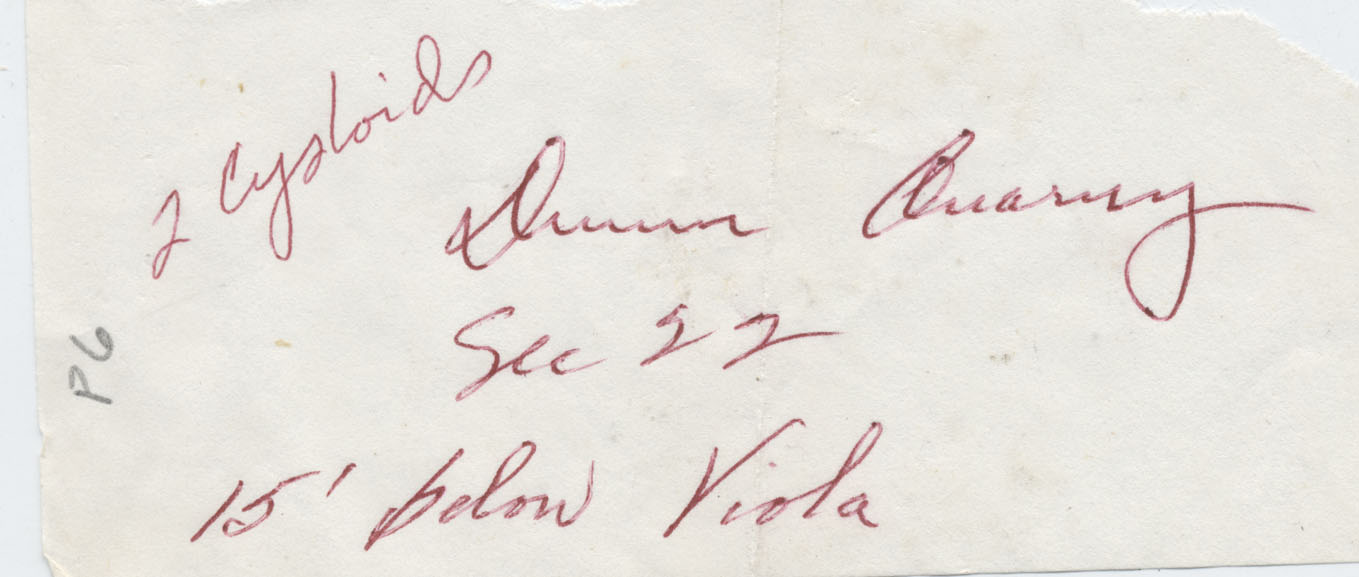 2 Cystoids
Dunn Quarry
Sec 22
15' below Viola
P6